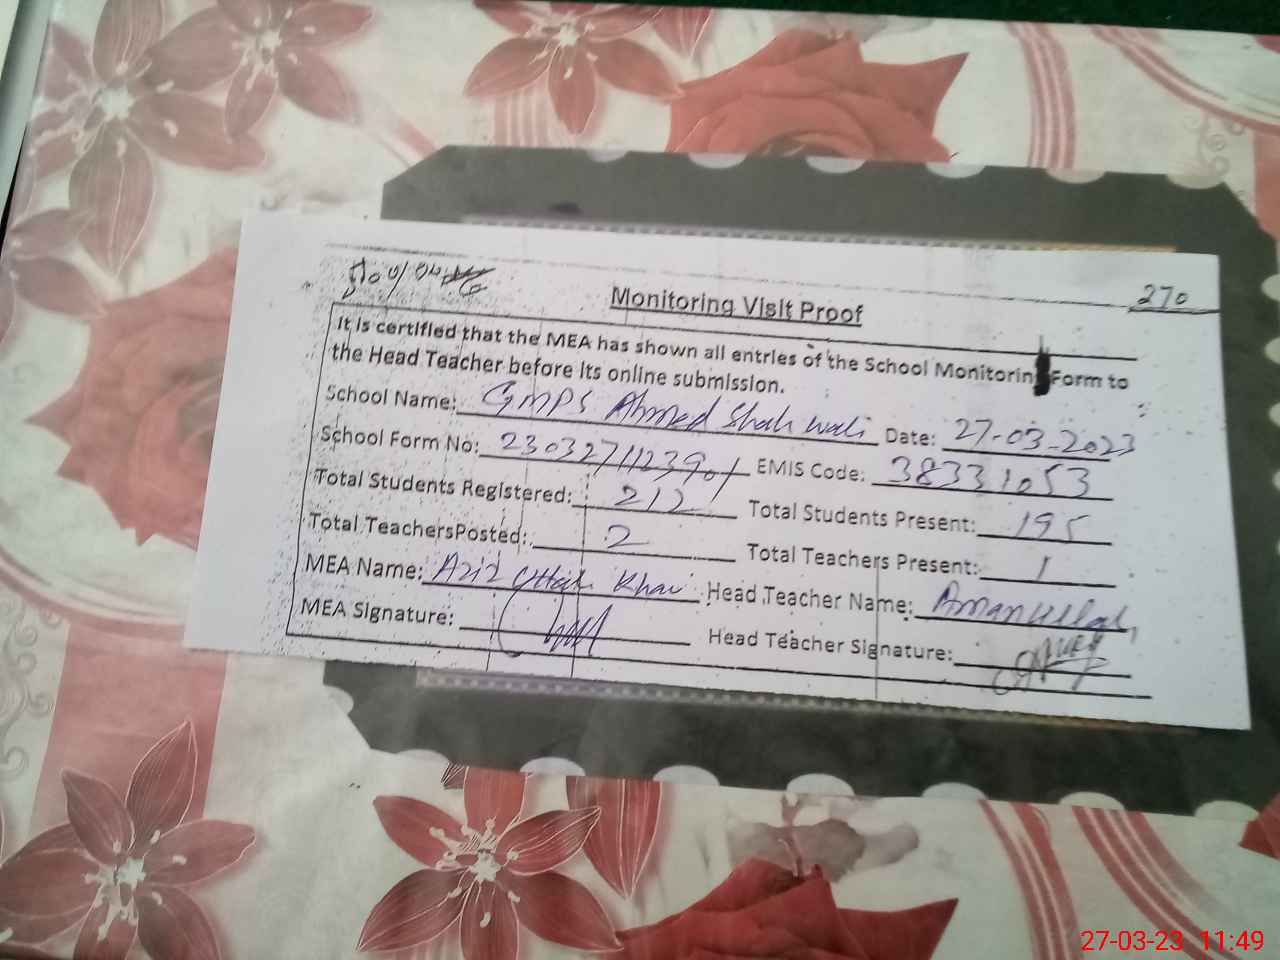 270
Monitoring Visit Proof
It is certified that the MEA has shown all entries of the School Monitoring Form to
the Head Teacher before its online submission.
School Name: GMPS Ahmed Shah Wali Date: 27-03-2023
School Form No: EMIS Code: 38331053
Total Students Registered: 212 Total Students Present: 195
Total TeachersPosted: 2 Total Teachers Present: 1
MEA Name: Aziz Ullah Khan Head Teacher Name: Amanullah
MEA Signature: Head Teacher Signature:
27-03-23 11:49